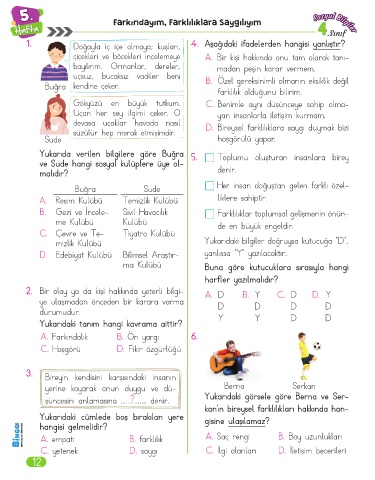 5.
Hafta
Farkındayım, Farklılıklara Saygılıyım
Sosyal Bilgiler
4. Sınıf
1.
Doğayla iç içe olmayı; kuşları,
çiçekleri ve böcekleri incelemeye
bayılırım. Ormanlar, dereler,
uçsuz, bucaksız vadiler beni
kendine çeker.
Buğra
Gökyüzü en büyük tutkum.
Uçan her şey ilgimi çeker. O
devasa uçaklar havada nasıl
süzülür hep merak etmişimdir.
Sude
Yukarıda verilen bilgilere göre Buğra
ve Sude hangi sosyal kulüplere üye ol-
malıdır?
Buğra Sude
A. Resim Kulübü Temizlik Kulübü
B. Gezi ve İncele- Sivil Havacılık
me Kulübü Kulübü
C. Çevre ve Te- Tiyatro Kulübü
mizlik Kulübü
D. Edebiyat Kulübü Bilimsel Araştır-
ma Kulübü
2. Bir olay ya da kişi hakkında yeterli bilgi-
ye ulaşmadan önceden bir karara varma
durumudur.
Yukarıdaki tanım hangi kavrama aittir?
A. Farkındalık B. Ön yargı
C. Hoşgörü D. Fikir özgürlüğü
3.
Bireyin kendisini karşısındaki insanın
yerine koyarak onun duygu ve dü-
şüncesini anlamasına ....?.... denir.
Yukarıdaki cümlede boş bırakılan yere
hangisi gelmelidir?
A. empati B. farklılık
C. yetenek D. saygı
4. Aşağıdaki ifadelerden hangisi yanlıştır?
A. Bir kişi hakkında onu tam olarak tanı-
madan peşin karar vermem.
B. Özel gereksinimli olmanın eksiklik değil
farklılık olduğunu bilirim.
C. Benimle aynı düşünceye sahip olma-
yan insanlarla iletişim kurmam.
D. Bireysel farklılıklara saygı duymak bizi
hoşgörülü yapar.
5. Toplumu oluşturan insanlara birey
denir.
Her insan doğuştan gelen farklı özel-
liklere sahiptir.
Farklılıklar toplumsal gelişmenin önün-
de en büyük engeldir.
Yukarıdaki bilgiler doğruysa kutucuğa "D",
yanlışsa "Y" yazılacaktır.
Buna göre kutucuklara sırasıyla hangi
harfler yazılmalıdır?
A. D B. Y C. D D. Y
D D D D
Y Y D D
6.
Berna Serkan
Yukarıdaki görsele göre Berna ve Ser-
kan'ın bireysel farklılıkları hakkında han-
gisine ulaşılamaz?
A. Saç rengi B. Boy uzunlukları
C. İlgi alanları D. İletişim becerileri
BİNGO!
12